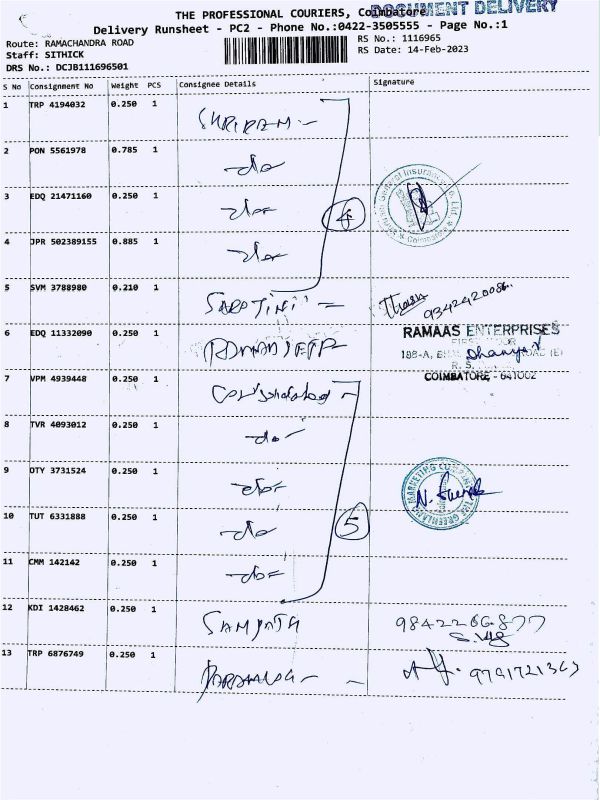 DOCUMENT DELIVERY
THE PROFESSIONAL COURIERS, Coimbatore
Delivery Runsheet - PC2 - Phone No.:0422-3505555 - Page No.:1
Route: RAMACHANDRA ROAD
RS No.: 1116965
Staff: SITHICK
RS Date: 14-Feb-2023
DRS No.: DCJB111696501
S No Consignment No Weight PCS Consignee Details Signature
1 TRP 4194032 0.250 1 SHRIRAM
2 PON 5561978 0.785 1 do
3 EDQ 21471160 0.250 1 do
4
4 JPR 502389155 0.885 1 do
General Insurance Co. Ltd. Coimbatore
5 SVM 3788980 0.210 1 SAROJINI 9342420086
6 EDQ 11332090 0.250 1
RAMAAS ENTERPRISES
188-A,
Dhanya
R. S.
COIMBATORE - 641002
7 VPM 4939448 0.250 1
8 TVR 4093012 0.250 1 do
9 OTY 3731524 0.250 1 do
MARKETING
10 TUT 6331888 0.250 1 do
5
11 CMM 142142 0.250 1 do
12 KDI 1428462 0.250 1 SAMPATH 9842266877
13 TRP 6876749 0.250 1 9791721363